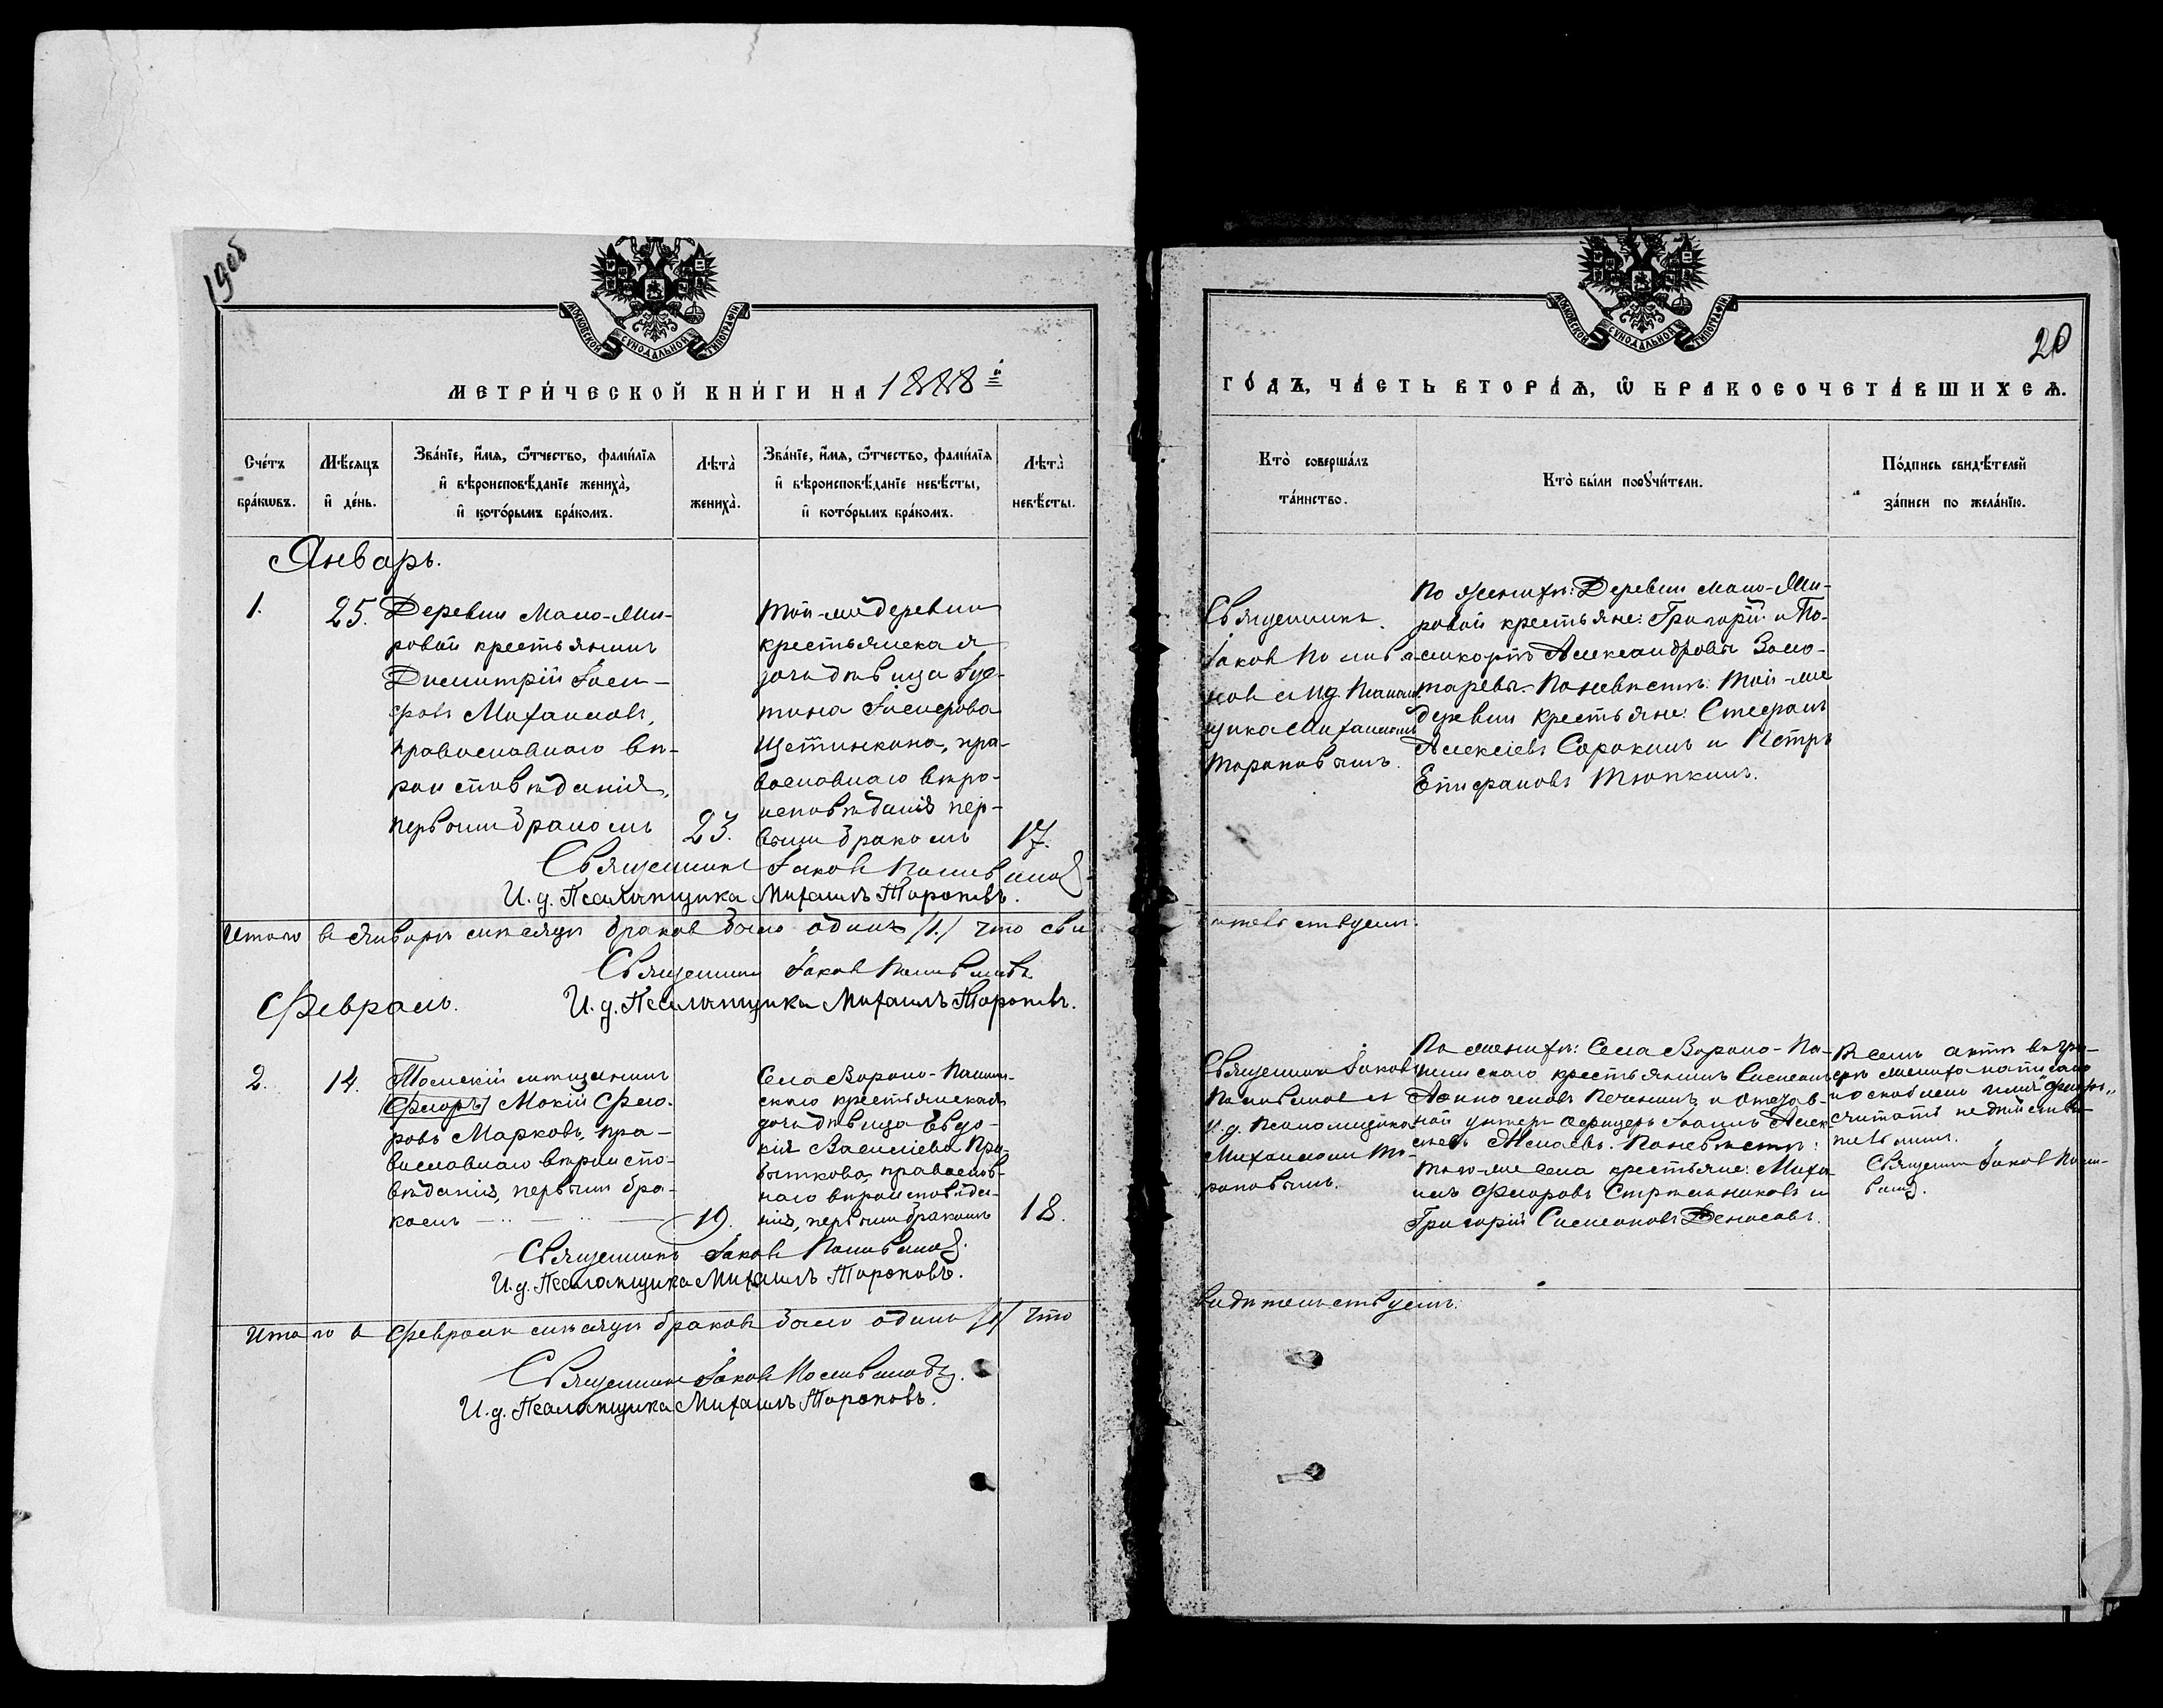 1905
МОСКОВСКОЙ СѴНОДАЛЬНОЙ ТИПОГРАФІИ
МЕТРИ́ЧЕСКОЙ КНИ́ГИ НА 1888 й
Сче́тъ бра́кѡвъ.
Мѣ́сяцъ и҆ де́нь.
Зва́нїе, и҆́мя, ѻ҆́тчество, фами́лїя
и҆ вѣроисповѣ́данїе жениха̀,
и҆ кото́рымъ бра́комъ.
Лѣта̀ жениха̀.
Зва́нїе, и҆́мя, ѻ҆́тчество, фами́лїя
и҆ вѣроисповѣ́данїе невѣ́сты,
и҆ кото́рымъ бра́комъ.
Лѣта̀ невѣ́сты.
Январь.
1.
25.
Деревни Мало-Жи-
ровой крестьянинъ
Димитрій Іоси-
фовъ Михаиловъ,
православнаго вѣ-
роисповѣданія,
первымъ бракомъ
23.
Той-же деревни
крестьянская
дочь дѣвица Іус-
тина
Щетинкина, пра-
вославнаго вѣро-
исповѣданія пер-
вымъ бракомъ
17.
Священникъ Іаковъ Поливановъ
И. д. Псаломщика Михаилъ Тороповъ.
Итого в январѣ мѣсяцѣ браковъ было одинъ /1/ что сви
Священникъ Іаковъ Поливановъ
И. д. Псаломщика Михаилъ Тороповъ.
Февраль.
2.
14.
Томскій мѣщанинъ
/Флоръ/ Мокій Фло-
ровъ Марковъ, пра-
вославнаго вѣроиспо-
вѣданія, первымъ бра-
комъ
19.
Села Вороно-Пашин-
скаго крестьянская
дочь дѣвица Евдо-
кія Василіева Пра-
выткова, православ-
наго вѣроисповѣда-
нія, первымъ бракомъ
18.
Священникъ Іаковъ Поливановъ.
И. д. Псаломщика Михаилъ Тороповъ.
Итого в Февралѣ мѣсяцѣ браковъ было одинъ /1/ что
Священникъ Іаковъ Поливановъ.
И. д. Псаломщика Михаилъ Тороповъ.
МОСКОВСКОЙ СѴНОДАЛЬНОЙ ТИПОГРАФІИ
20
ГО́ДЪ, ЧА́СТЬ ВТОРА́Ѧ, Ѽ БРАКОСОЧЕТА́ВШИХСѦ.
Кто̀ соверша́лъ
та́инство.
Кто̀ бы́ли порꙋчи́тели.
По́дпись свидѣ́телей
за́писи по жела́нїю.
Священникъ
Іаковъ Полива-
новъ и И.д. Псалом-
щика Михаиломъ
Тороповымъ.
По женихѣ: Деревни Мало-Жи-
ровой крестьяне: Григорій и По-
ликарпъ Александровы Золо-
таревы. По невѣстѣ: Той-же
деревни крестьяне: Стефанъ
Алексіевъ Сорокинъ и Петръ
Епифановъ Тюпкинъ.
дѣтельствуемъ.
Священникъ Іаковъ
Поливановъ и
И. д. Псаломщика
Михаиломъ То-
роповымъ.
По женихѣ: Села Вороно-Па-
шинскаго крестьянинъ Симеонъ
Печенинъ и отстав-
ной унтеръ офицеръ Іоаннъ Алек-
сіевъ По невѣстѣ:
того-же села крестьяне: Миха-
илъ Флоровъ Стрѣльниковъ и
Григорій Симеоновъ Денисовъ.
В семъ актѣ въ гра-
фѣ жениха написано
и оскоблено имя „Флоръ„
считать недѣйстви-
тельнымъ.
Священникъ Іаковъ Поли-
вановъ.
видѣтельствуемъ.